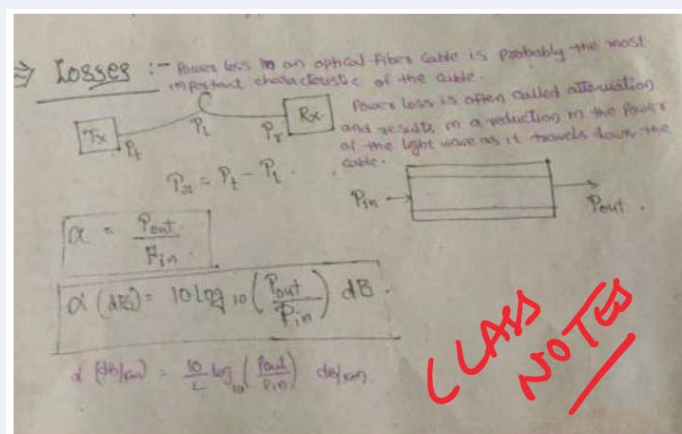 ⇒ Losses :- Power loss in an optical fiber cable is probably the most
important characteristic of the cable.
Power loss is often called attenuation
and results in a reduction in the power
of the light wave as it travels down the
cable.
Tx Pt Pl Pr Rx
Pr = Pt - Pl .
Pin Pout .
α = Pout / Pin .
α (dB) = 10 log 10 (Pout / Pin) dB .
α (dB/km) = 10/L log 10 (Pout / Pin) dB/km
CLASS
NOTES